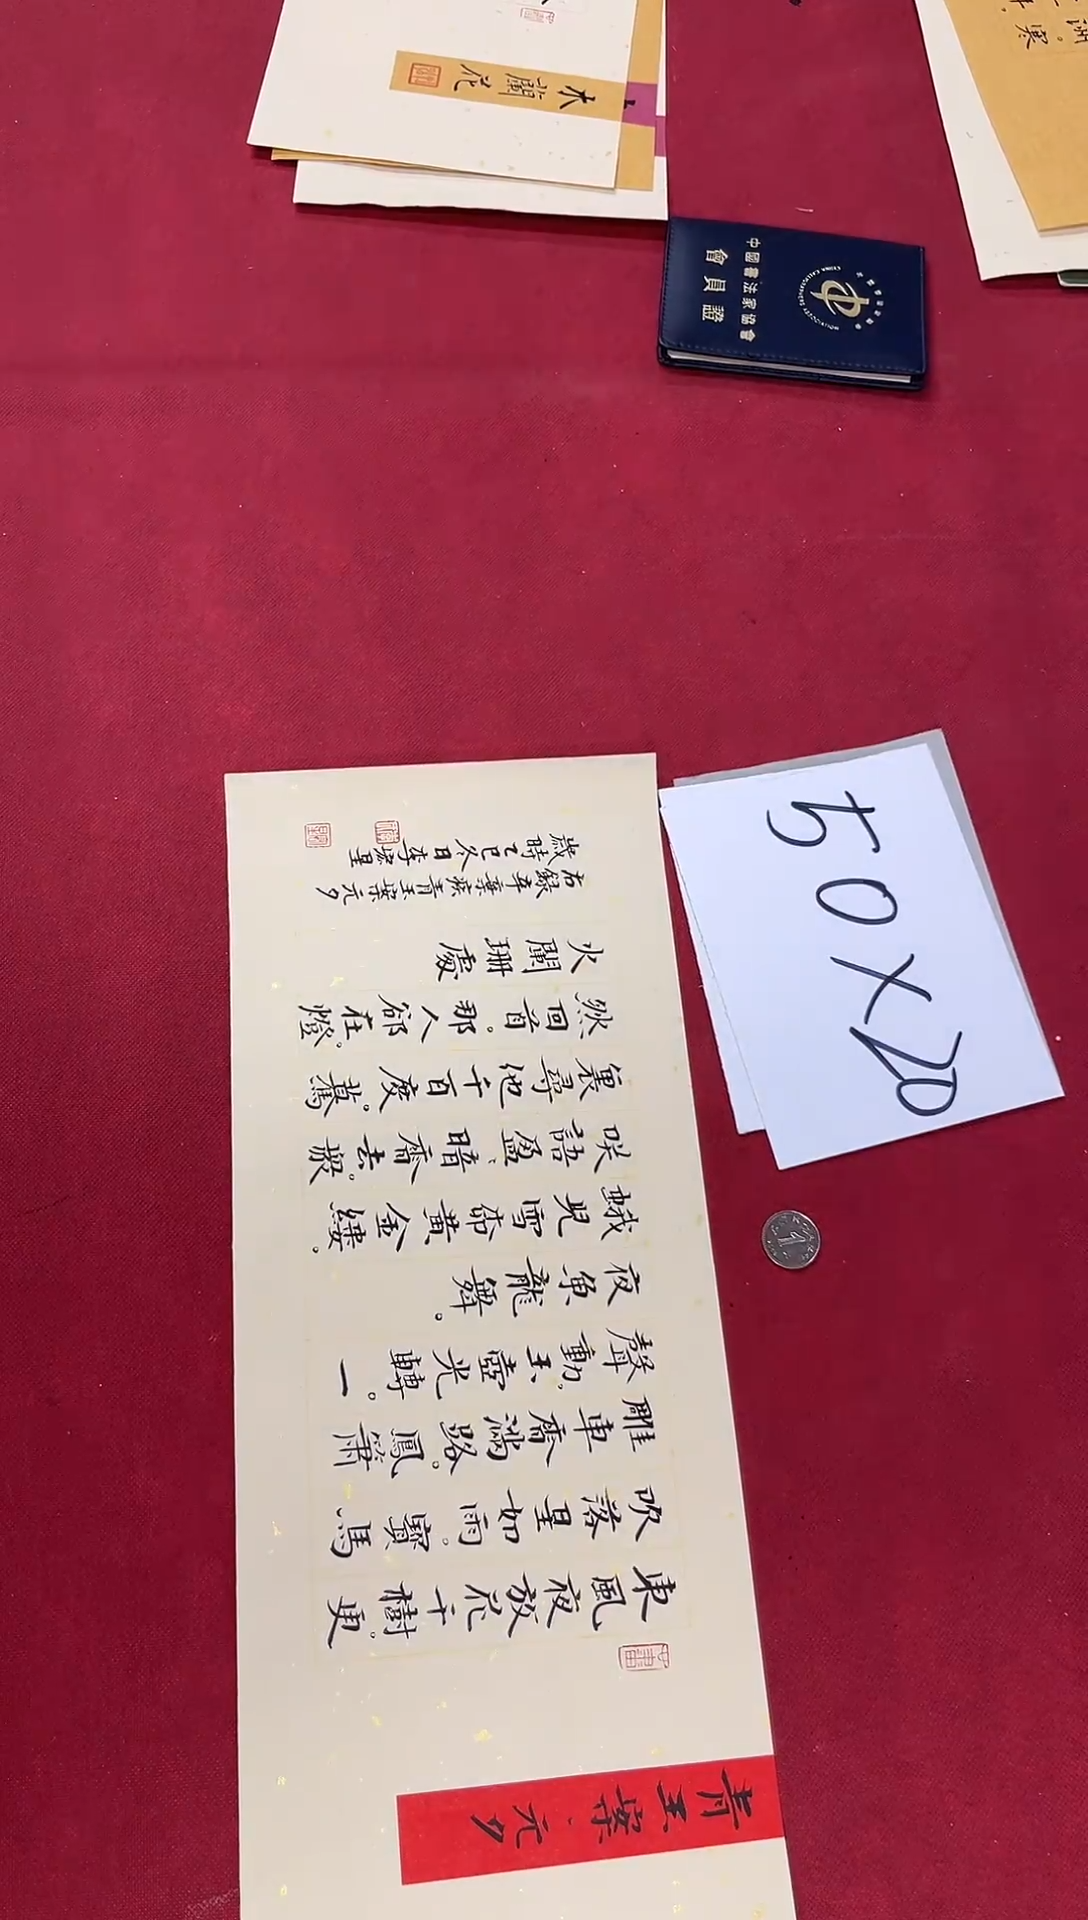 青玉案·元夕
東風夜放花千樹。更
吹落星如雨。寶馬
雕車香滿路。鳳簫
聲動，玉壺光轉。一
夜魚龍舞。
蛾兒雪柳黃金縷。
咲語盈盈暗香去。衆
裏尋他千百度。驀
然回首。那人卻在。燈
火闌珊處
右錄辛棄疾青玉案元夕
歲時乙巳冬日李
50×20
1
中國書法家協會
會員證
木蘭花
洲
寒